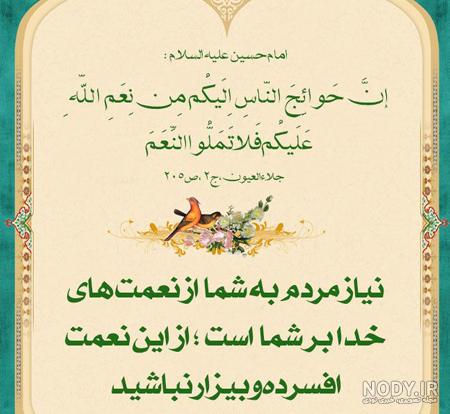 امام حسین علیه السلام :
إِنَّ حَوائِجَ النّاسِ إِلَیکُم مِن نِعَمِ اللّهِ
عَلَیکُم فَلا تَمَلُّوا النِّعَمَ
جلاءالعیون، ج۲، ص۲۰۵
نیاز مردم به شما از نعمت‌های
خدا بر شما است ؛ از این نعمت
افسرده و بیزار نباشید
NODY.IR